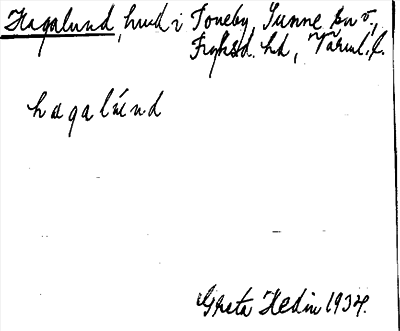 Hagalund, hmd i Toneby, Sunne sn ö.,
Fryksd. hd, Värml. l.
hagalúnd
Greta Hedin 1934.